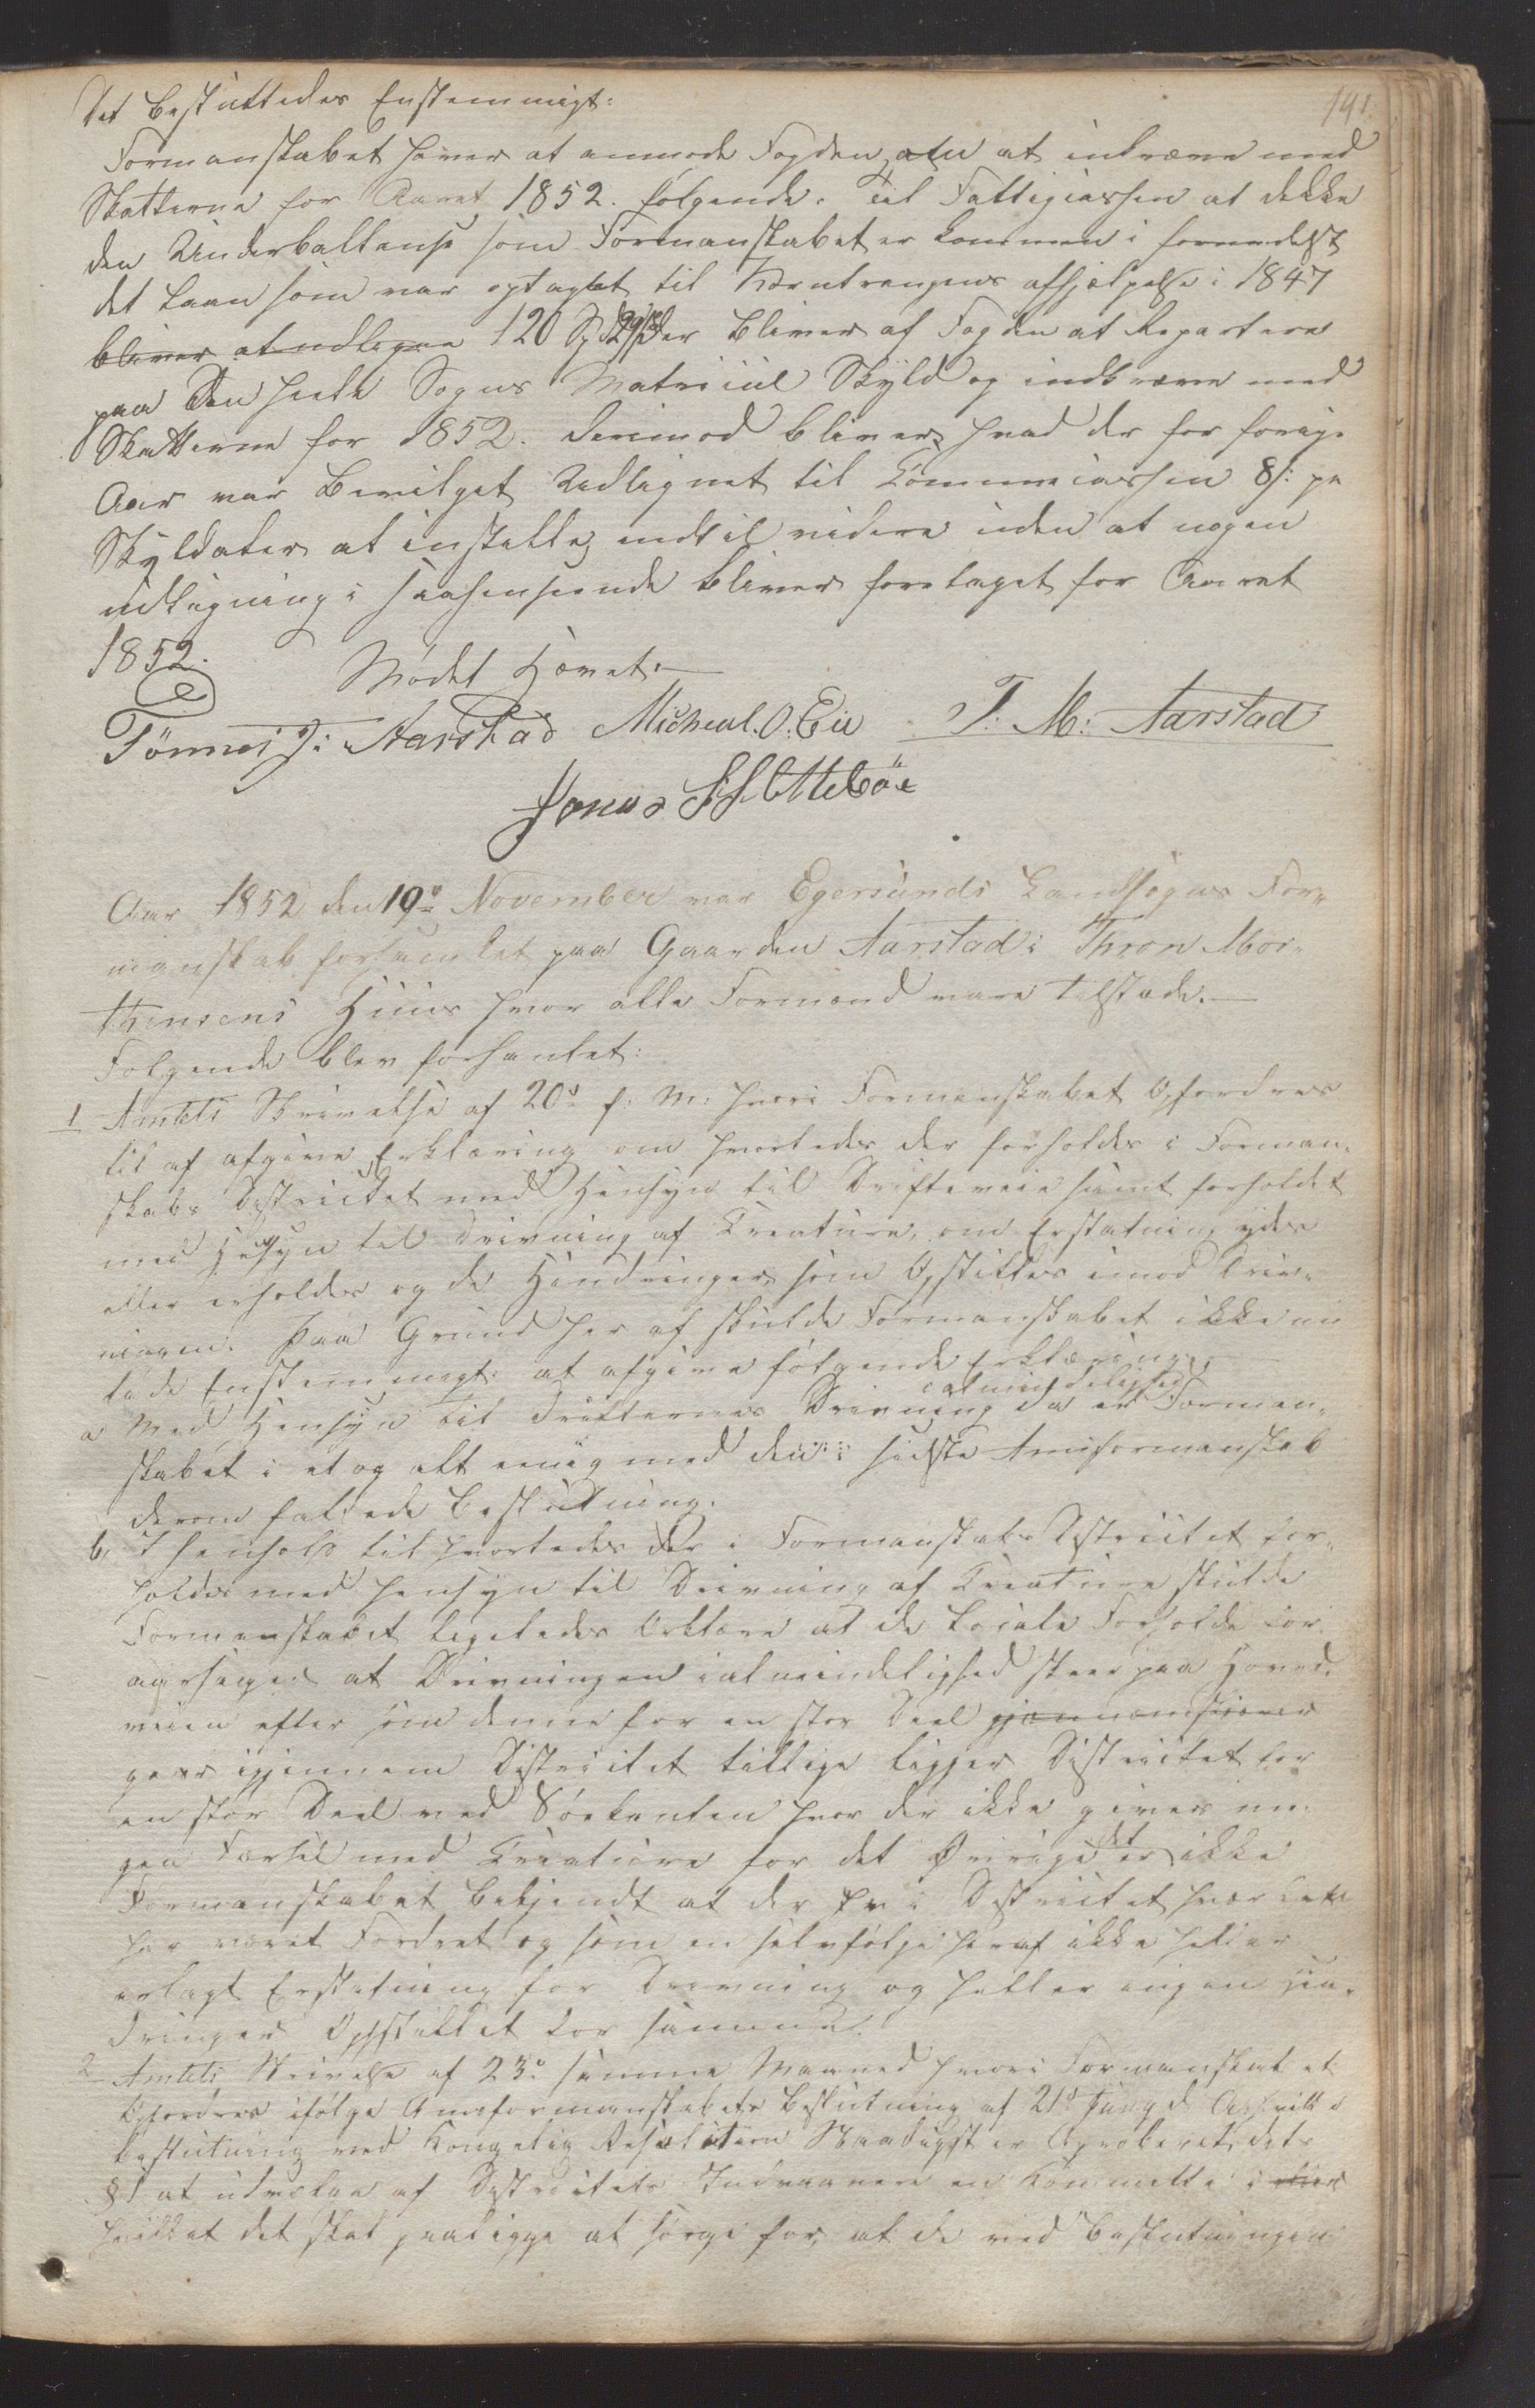 141.
Det besluttedes Enstemmigt:
Formanskabet haver at anmode Fogden at indkræve med
Skatterne for Aaret 1852. følgende. Til Fattigcassen at dekke
den Underballanse som Formanskabet er kommen i formedelst
det Laan som var optaget til Korntrangens afhjelpelse i 1847
bliver at udligne 120 Spd der bliver af Fogden at Repartere
paa den heele Sogns Matricul Skyld og indkræve med
Skatterne for 1852. derimod bliver hvad der for forrige
Aar var bevilget Udlignet til Communecassen 8 s: pr
Skylddaler at instille indtil videre uden at nogen
udligning i saahenseende bliver foretaget for Aaret
1852.
Mødet Hævet.
Tönnes T: Aarstad Micheal. O. Eie T: M: Aarstad
Jonas S. Sletteböe
Aar 1852 den 19de November var Egersunds Landsogns For-
manskab forsamlet paa Gaarden Aarstad i Thron Mor-
thensens Huus hvor alle Formænd vare tilstæde.
Følgende blev forhanlet:
1 Amtets Skrivelse af 20d f: M: hvori Formanskabet Opfordres
til af afgive Erklæring om hvorledes der forholdes i Forman-
skabs Districtet med Hensyn til Drifteveie samt forholdet
med Hensyn til Drivning af Creature, om Erstatning ydes
eller erholdes og de Hindringer som Opstilles imod Driv-
ningen. Paa Grund her af skulde Formanskabet ikke und
lade Enstemmigt at afgive følgende Erklæring
a Med Hensyn til Drifternes Drivning i almindelighed da er Forman-
skabet i et og alt eenig med den i sidste Amtsformanskab
derom fattede Beslutning.
b, I henhold til hvorledes der i Formanskabs Districtet for-
holdes med hensyn til Drivning af Creature skulde
Formanskabet ligeledes Erklære at de Locale Forholde for
aarsager at Drivningen i almindelighed skeer paa Hoved-
veien efter som denne for en stor Deel
gaar igjennem Districtet tillige ligger Districtet for
en stor Deel ved Söekanten hvor der ikke gives no-
gen Færsel med Creature for det Øvrige er det ikke
Formanskabet bekjendt at der i Districtet hverken
har været Fordret og som en selvfølge heraf ikke heller
erlagt Erstatning for Drivning og heller ingen Hin-
dringer Opstillet for samme.
2 Amtets Skrivelse af 23de samme Maaned hvori Formanskabet
Opfordres ifølge Amtsformanskabets Beslutning af 21d Juny d. A hvilke
beslutning ved Kongelig Resolution Naadigst er Aproberet, dets
§ 1 at udvælge af Districtets Indvaanere en Committe i
hvilket det skal paaligge at sörge for, at de ved beslutningen